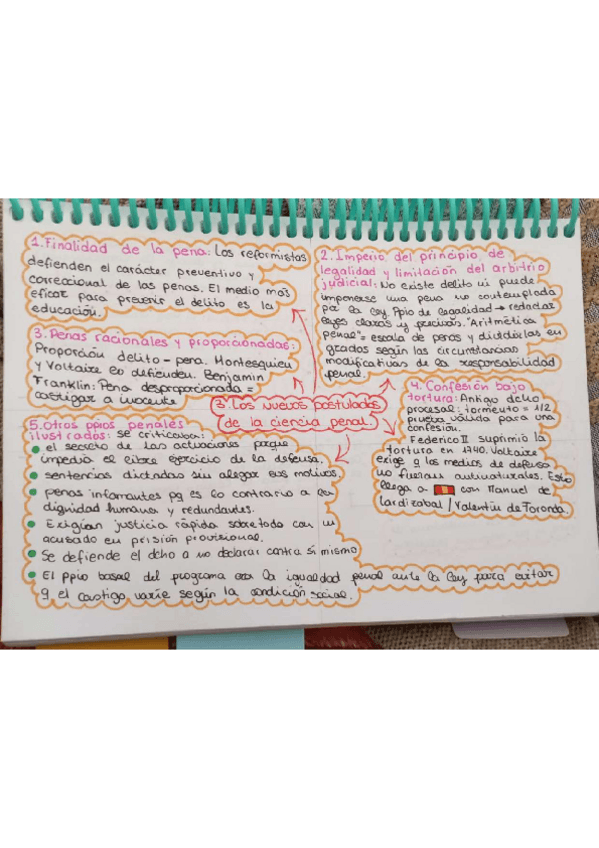 1. Finalidad de la pena: Los reformistas
defienden el carácter preventivo y
correccional de las penas. El medio más
eficaz para prevenir el delito es la
educación.
2. Imperio del principio de
legalidad y limitación del arbitrio
judicial: No existe delito ni puede
imponerse una pena no contemplada
por la ley. Ppio de legalidad → redactar
leyes claras y precisas. "Aritmética
penal" = escala de penas y dividirlas en
grados según las circunstancias
modificativas de la responsabilidad
penal.
3. Penas racionales y proporcionadas:
Proporción delito - pena. Montesquieu
y Voltaire lo defienden. Benjamin
Franklin: Pena desproporcionada =
castigar a inocente
3. Los nuevos postulados
de la ciencia penal.
4. Confesión bajo
tortura: Antiguo dcho
procesal: tormento = 1/2
prueba válida para una
confesión.
Federico II suprimió la
tortura en 1740. Voltaire
exige q los medios de defensa
no fueran antinaturales. Esto
llega a con Manuel de
Lardizabal / Valentín de Foronda.
5. Otros ppios penales
ilustrados: se criticaba:
el secreto de las actuaciones porque
impedía el libre ejercicio de la defensa.
sentencias dictadas sin alegar sus motivos.
penas infamantes pq es lo contrario a la
dignidad humana y redundantes.
Exigían justicia rápida sobretodo con un
acusado en prisión provisional.
Se defiende el dcho a no declarar contra sí mismo
El ppio basal del programa era la igualdad penal ante la ley para evitar
q el castigo varíe según la condición social.